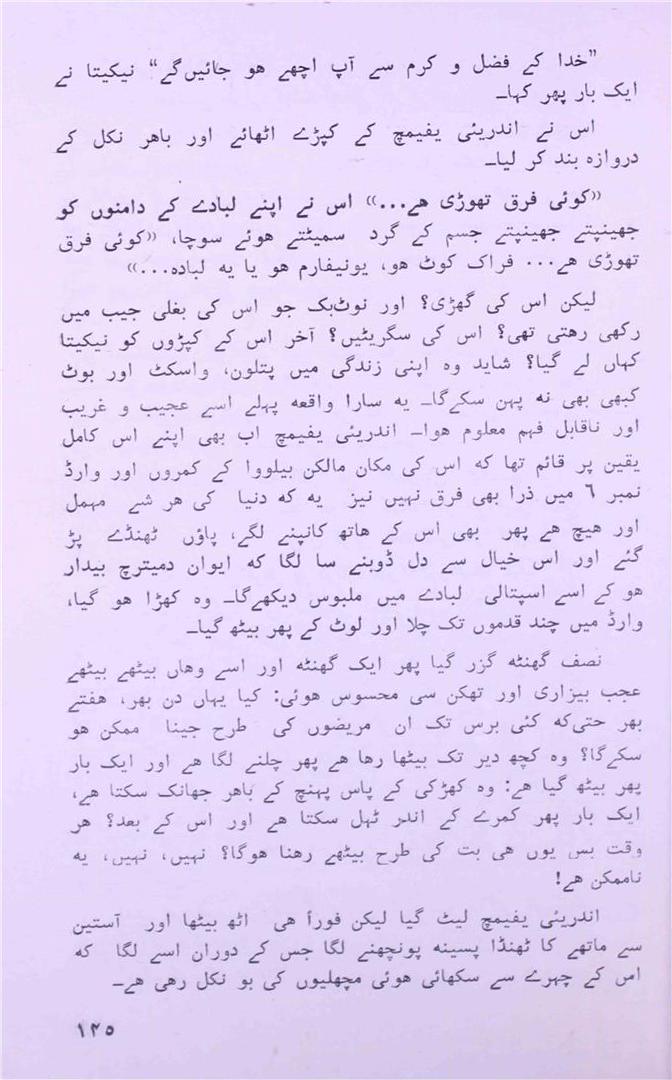 ”خدا کے فضل و کرم سے آپ اچھے ھو جائیں گے“ نیکیتا نے
ایک بار پھر کہا۔
اس نے اندریئی یفیمچ کے کپڑے اٹھائے اور باھر نکل کے
دروازہ بند کر لیا۔
«کوئی فرق تھوڑی ھے...» اس نے اپنے لبادے کے دامنوں کو
جھینپتے جھینپتے جسم کے گرد سمیٹتے ھوئے سوچا، «کوئی فرق
تھوڑی ھے... فراک کوٹ ھو، یونیفارم ھو یا یہ لبادہ...»
لیکن اس کی گھڑی؟ اور نوٹ‌بک جو اس کی بغلی جیب میں
رکھی رھتی تھی؟ اس کی سگریٹیں؟ آخر اس کے کپڑوں کو نیکیتا
کہاں لے گیا؟ شاید وہ اپنی زندگی میں پتلون، واسکٹ اور بوٹ
کبھی بھی نہ پہن سکے‌گا۔ یہ سارا واقعہ پہلے اسے عجیب و غریب
اور ناقابل فہم معلوم ھوا۔ اندریئی یفیمچ اب بھی اپنے اس کامل
یقین پر قائم تھا کہ اس کی مکان مالکن بیلووا کے کمروں اور وارڈ
نمبر ٦ میں ذرا بھی فرق نہیں نیز یہ کہ دنیا کی ھر شے مہمل
اور ھیچ ھے پھر بھی اس کے ھاتھ کانپنے لگے، پاؤں ٹھنڈے پڑ
گئے اور اس خیال سے دل ڈوبنے سا لگا کہ ایوان دمیترچ بیدار
ھو کے اسے اسپتالی لبادے میں ملبوس دیکھے‌گا۔ وہ کھڑا ھو گیا،
وارڈ میں چند قدموں تک چلا اور لوٹ کے پھر بیٹھ گیا۔
نصف گھنٹہ گزر گیا پھر ایک گھنٹہ اور اسے وھاں بیٹھے بیٹھے
عجب بیزاری اور تھکن سی محسوس ھوئی: کیا یہاں دن بھر، ھفتے
بھر حتی‌کہ کئی برس تک ان مریضوں کی طرح جینا ممکن ھو
سکے‌گا؟ وہ کچھ دیر تک بیٹھا رھا ھے پھر چلنے لگا ھے اور ایک بار
پھر بیٹھ گیا ھے: وہ کھڑکی کے پاس پہنچ کے باھر جھانک سکتا ھے،
ایک بار پھر کمرے کے اندر ٹہل سکتا ھے اور اس کے بعد؟ ھر
وقت بس یوں ھی بت کی طرح بیٹھے رھنا ھوگا؟ نہیں، نہیں، یہ
ناممکن ھے!
اندریئی یفیمچ لیٹ گیا لیکن فوراً ھی اٹھ بیٹھا اور آستین
سے ماتھے کا ٹھنڈا پسینہ پونچھنے لگا جس کے دوران اسے لگا کہ
اس کے چہرے سے سکھائی ھوئی مچھلیوں کی بو نکل رھی ھے۔
۱۲۵